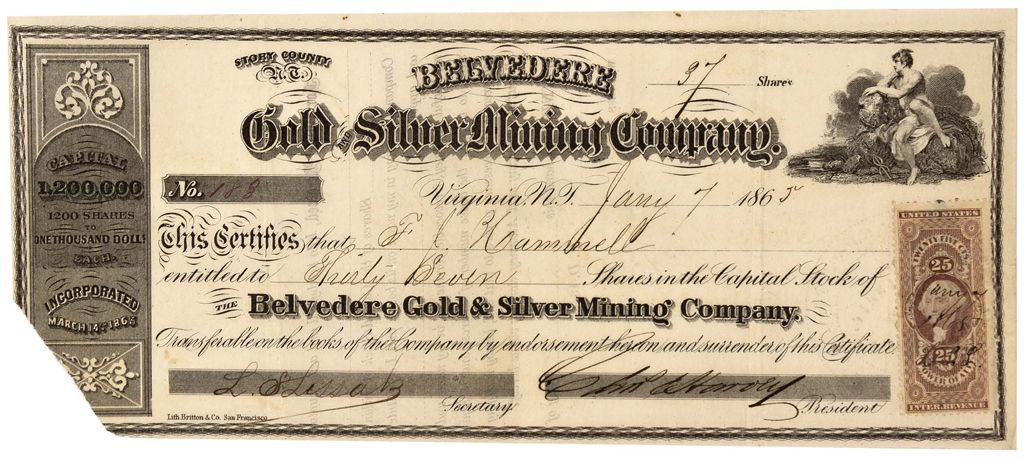 STORY COUNTY
N.T.
BELVEDERE
37 Shares
Gold AND Silver Mining Company.
CAPITAL
1,200,000
1200 SHARES
TO
ONE THOUSAND DOLLS
EACH.
INCORPORATED
MARCH 14TH 1863
No. 188
Virginia, N.T. Jany 7 1865
This Certifies, that F J Hammell
entitled to Thirty Seven Shares in the Capital Stock of
THE Belvedere Gold & Silver Mining Company,
Transferable on the books of the Company by endorsement hereon and surrender of this Certificate.
Secretary
President
Lith. Britton & Co. San Francisco
UNITED STATES
TWENTY FIVE CTS.
25
25
POWER OF ATT'Y
INTER. REVENUE